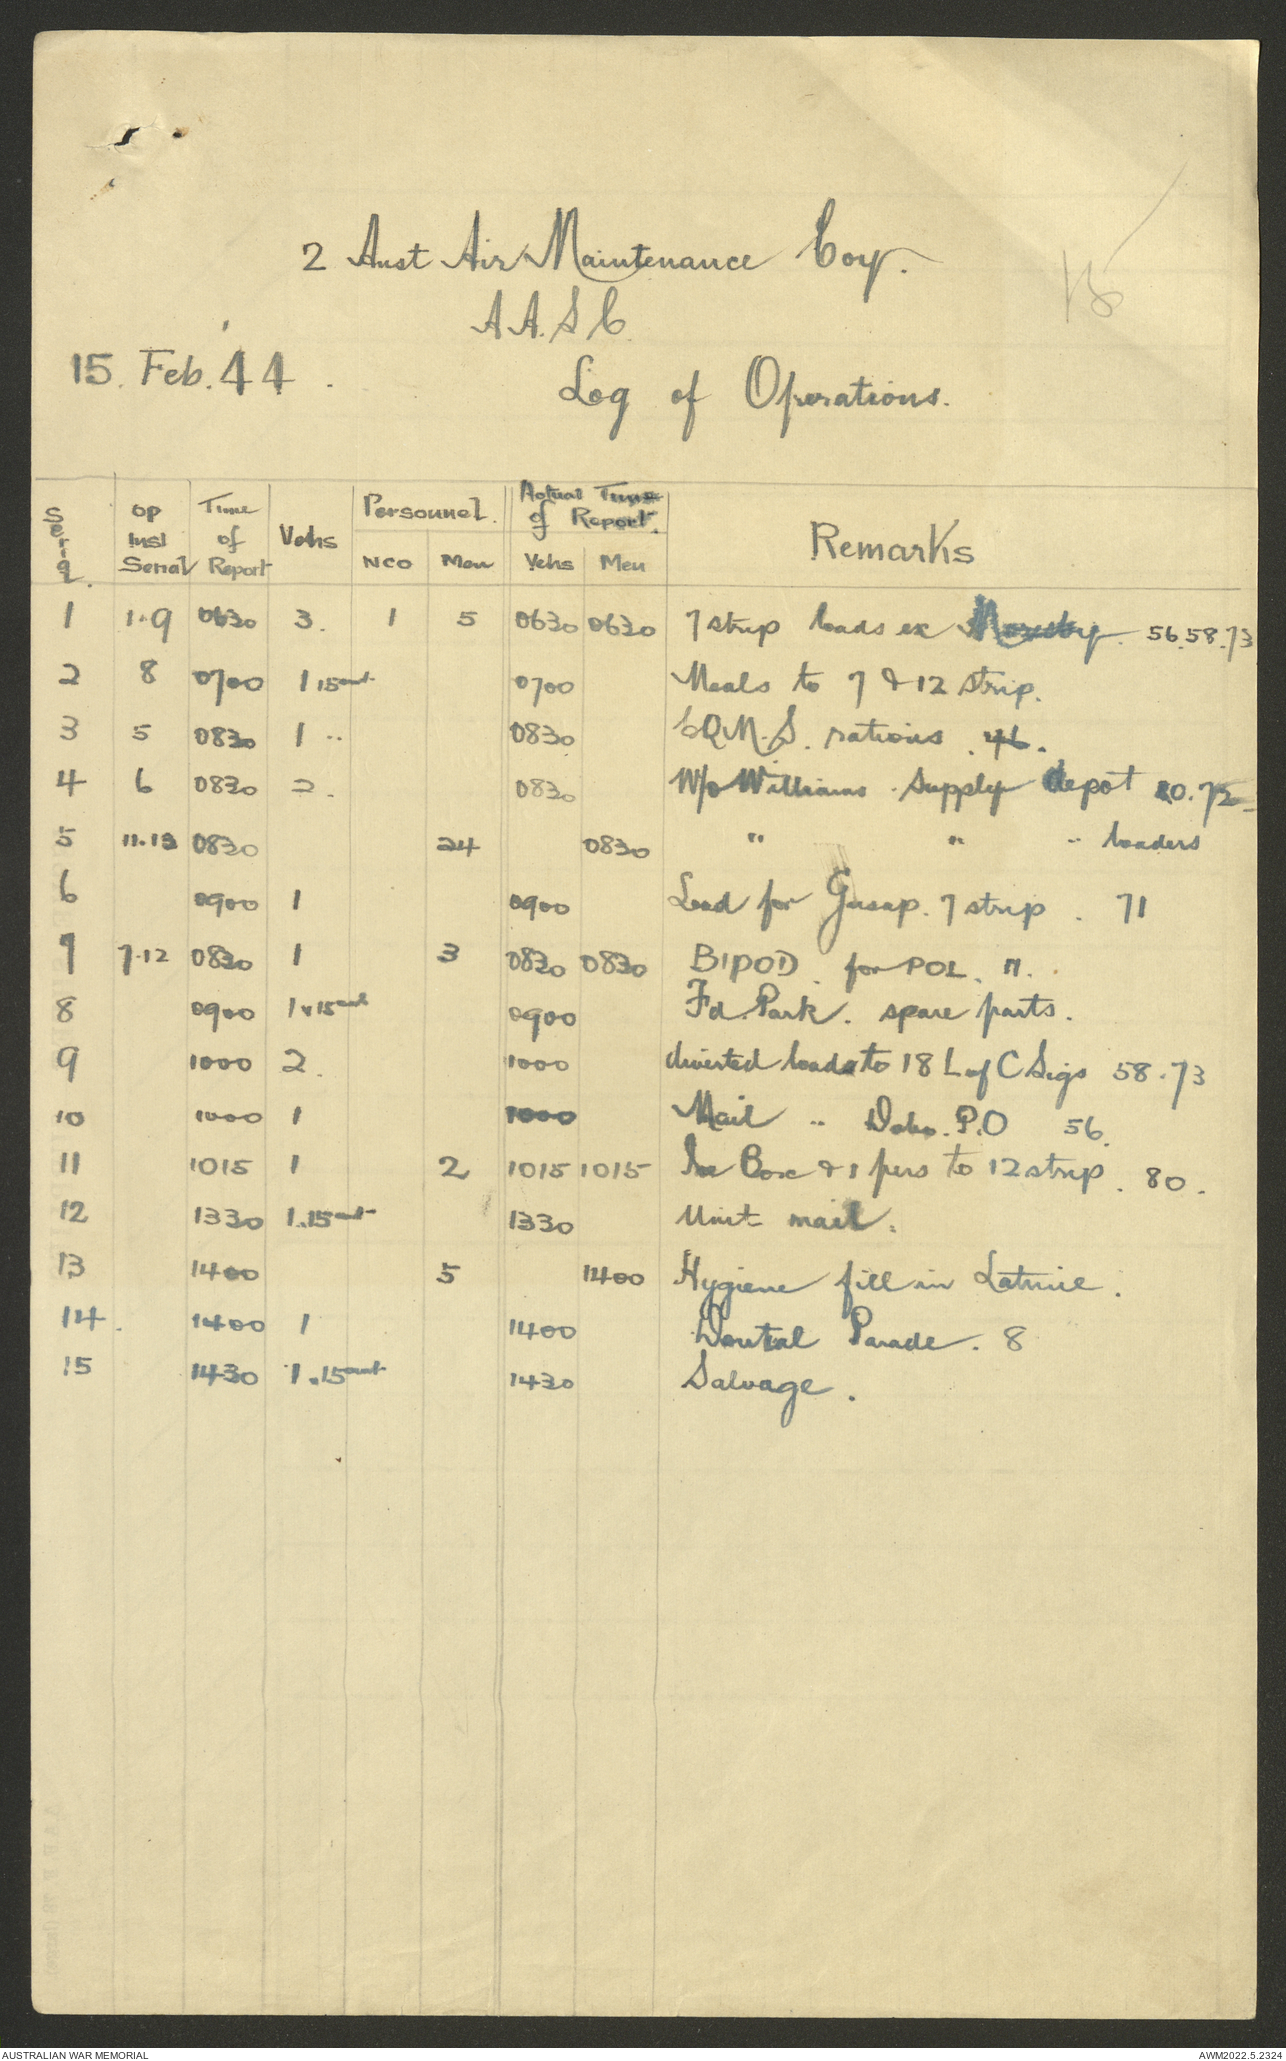 2 Aust Air Maintenance Coy.
A.A.S.C.
15. Feb. 44.
Log of Operations.
Serial Op Inst Serial Time of Report Vehs Personnel. NCO Men Actual Time of Report. Vehs Men Remarks
1 1.9 0630 3. 1 5 0630 0630 7 strip loads ex Moresby. 56.58.73
2 8 0700 1 15cwt 0700 Meals to 7 & 12 strip.
3 5 0830 1 " 0830 CQ.M.S. rations. 46.
4 6 0830 2. 0830 W/o Williams. Supply depot 80.72
5 11.13 0830 24 0830 " " " loaders
6 0900 1 0900 Load for Gusap. 7 strip. 71
7 7.12 0830 1 3 0830 0830 BIPOD. for POL.
8 0900 1 x 15cwt 0900 Fd. Park. spare parts.
9 1000 2. 1000 diverted loads to 18 L of C Sigs 58.73
10 1000 1 1000 Mail " P.O 56.
11 1015 1 2 1015 1015 Ice Box & 1 pers to 12 strip. 80.
12 1330 1.15cwt 1330 Unit mail.
13 1400 5 1400 Hygiene fill in Latrine.
14. 1400 1 1400 Dental Parade. 8
15 1430 1.15cwt 1430 Salvage.
AUSTRALIAN WAR MEMORIAL
AWM2022.5.2324